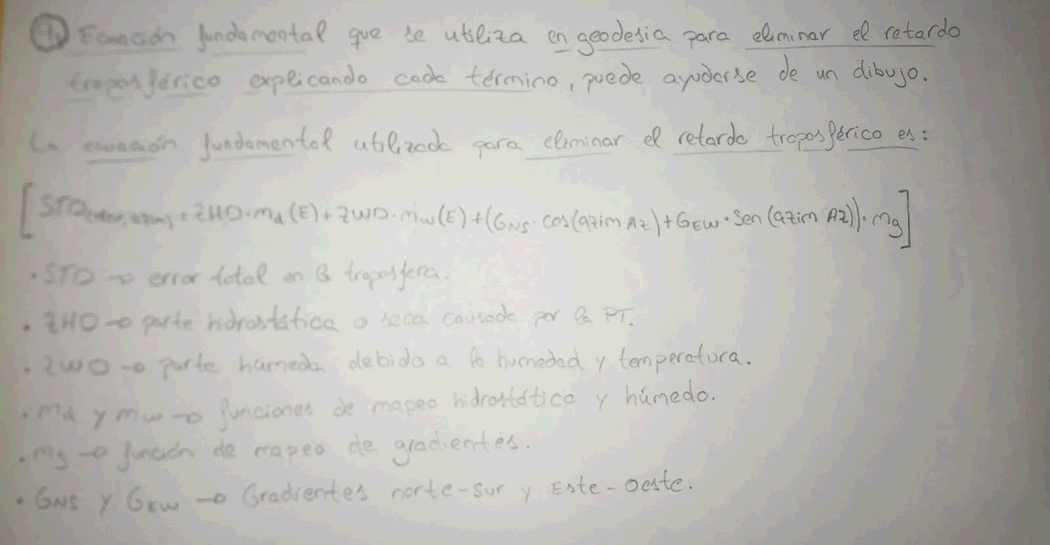 9. Ecuación fundamental que se utiliza en geodesia para eliminar el retardo
troposférico explicando cada término, puede ayudarse de un dibujo.
La ecuación fundamental utilizada para eliminar el retardo troposférico es:
[STD = ZHD·md(E) + ZWD·mw(E) + (GNS·cos(azim Az) + GEW·sen(azim Az))·mg]
·STD → error total en la troposfera.
·ZHD → parte hidrostática o seca causada por la PT.
·ZWD → parte húmeda debido a la humedad y temperatura.
·md y mw → funciones de mapeo hidrostático y húmedo.
·mg → función de mapeo de gradientes.
·GNS y GEW → Gradientes norte-sur y Este-oeste.